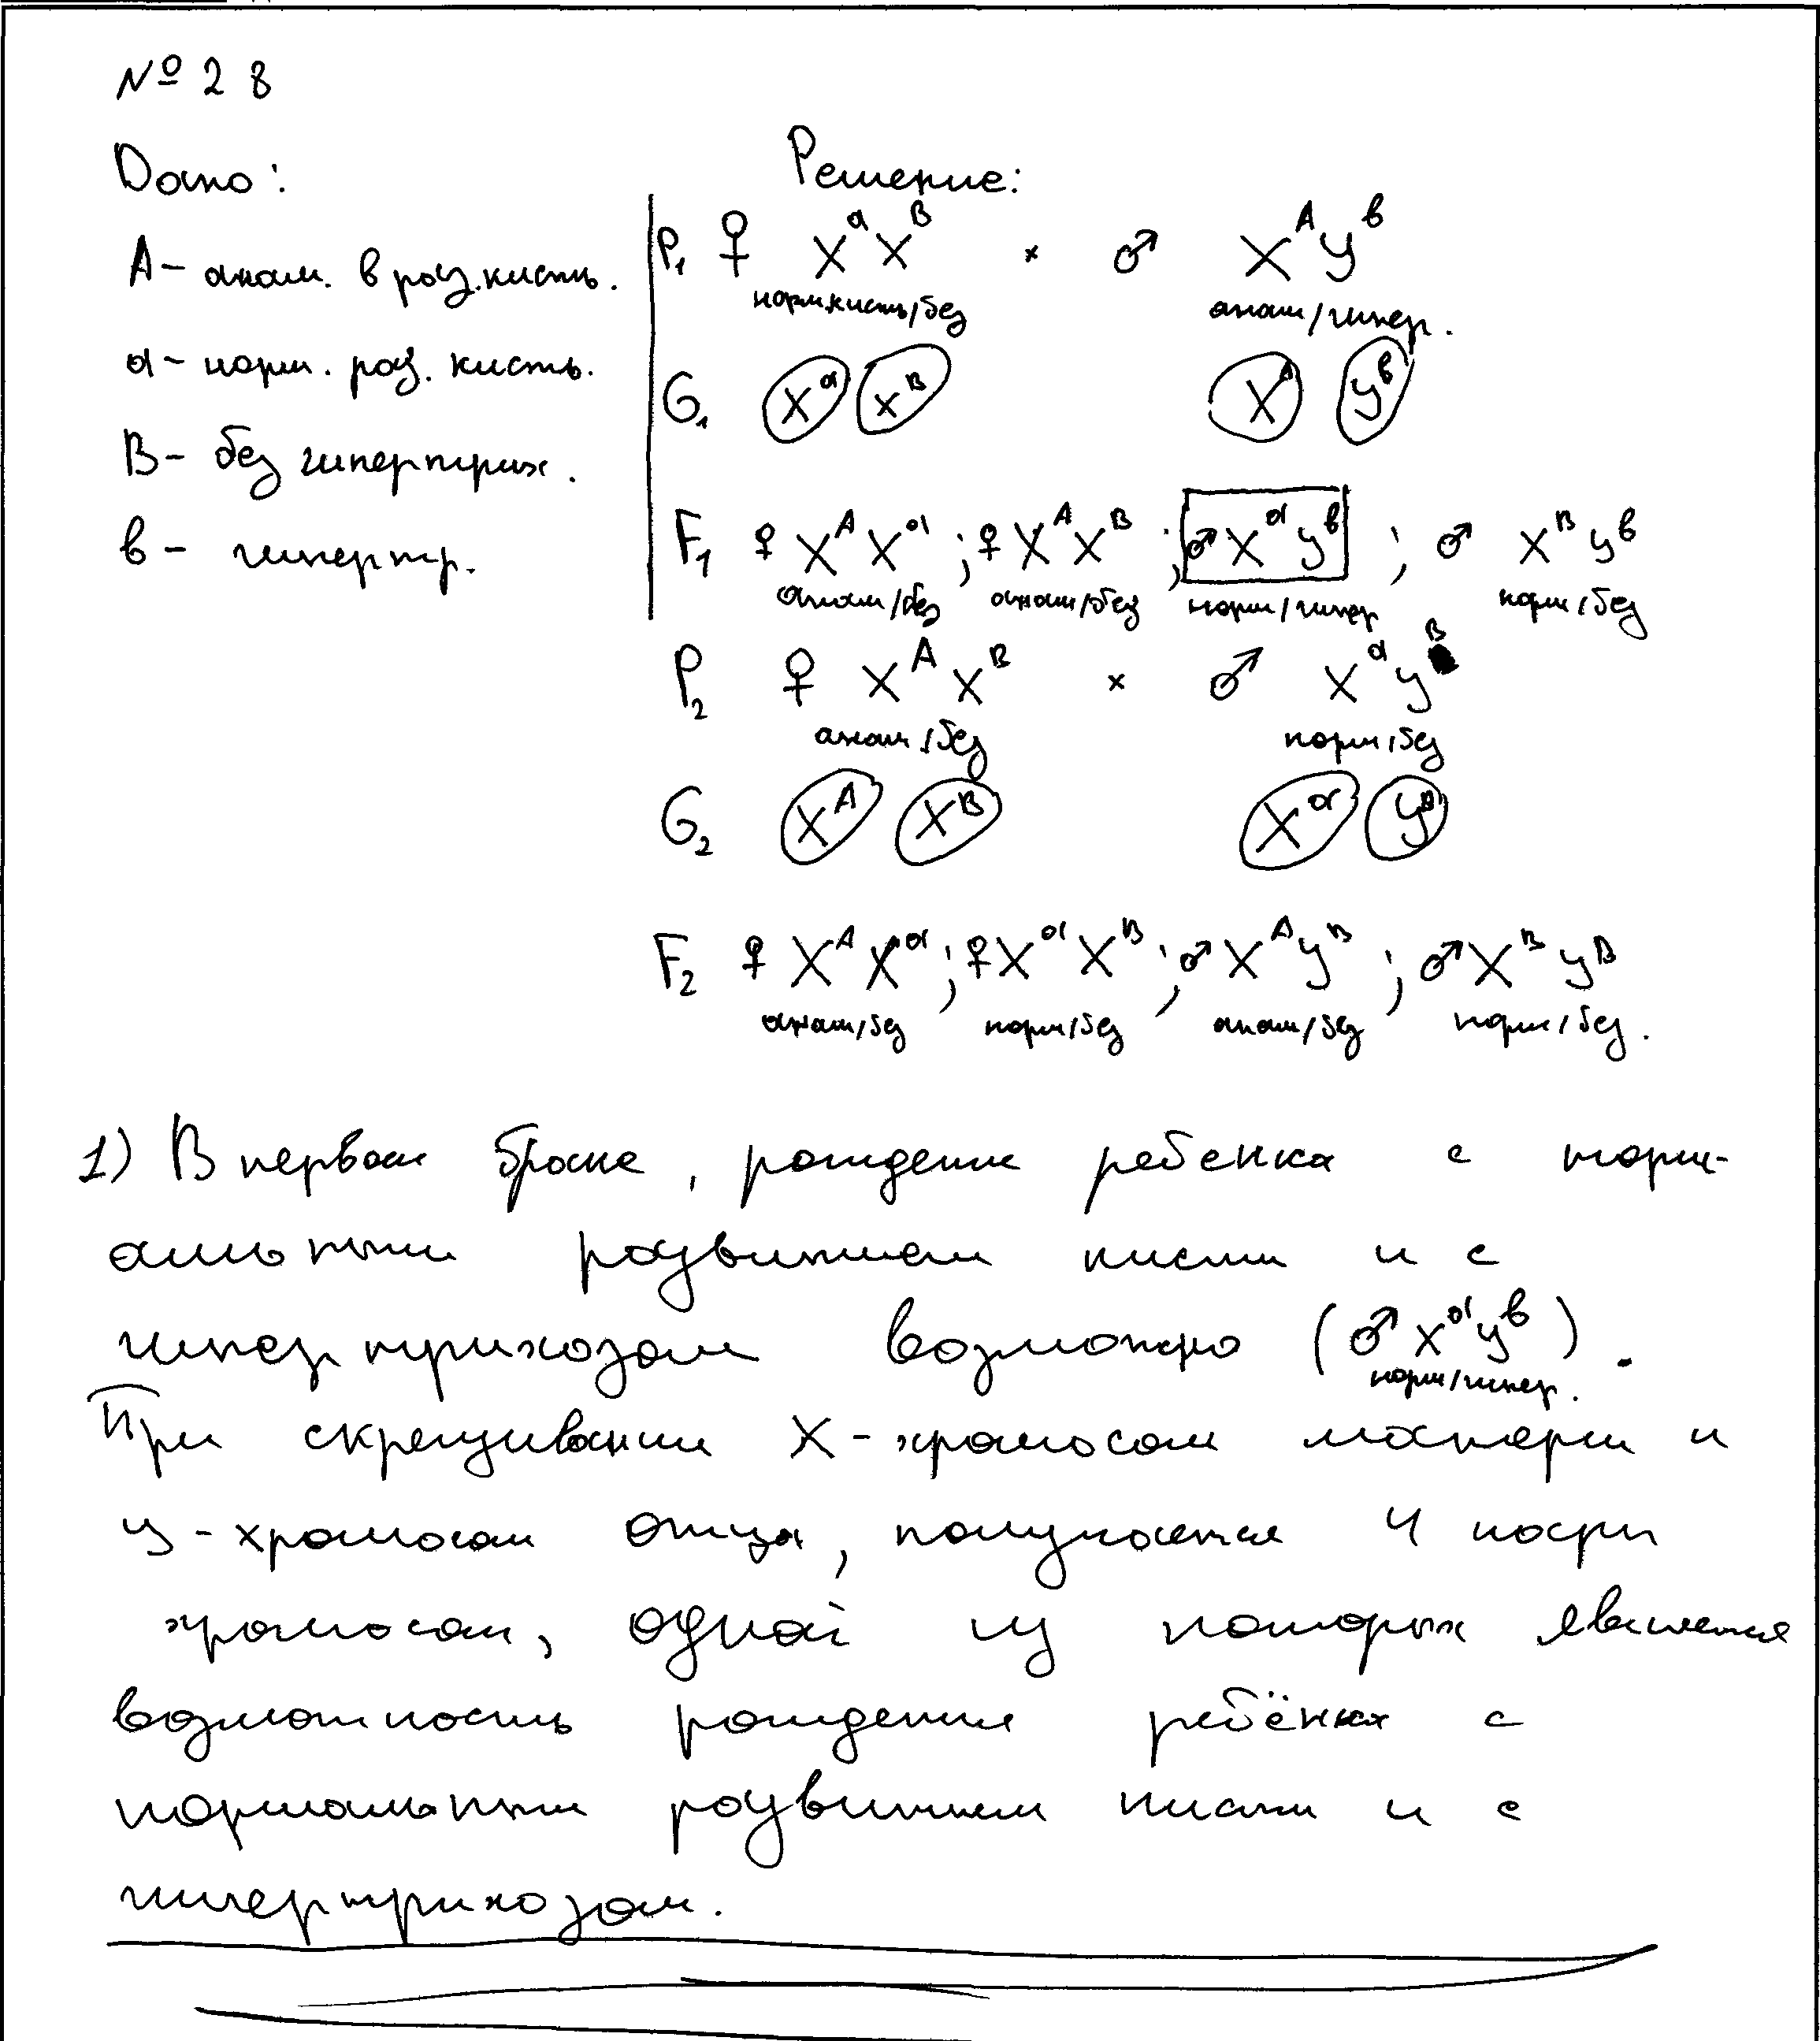 № 28
Дано:
Решение:
A - аном. в роз.кисть.
a - норм. роз. кисть.
B - без гипертрих.
b - гипертр.
P₁ ♀ XᵃXᴮ × ♂ XᴬYᵇ
норм.кисть/без аном/гипер.
G₁ Xᵃ Xᴮ Xᴬ Yᵇ
F₁ ♀ XᴬXᵃ ; ♀ XᴬXᴮ ; ♂ XᵃYᵇ ; ♂ XᴮYᵇ
аном/без аном/без норм/гипер норм/без
P₂ ♀ XᴬXᴮ × ♂ XᵃYᴮ
аном/без норм/без
G₂ Xᴬ Xᴮ Xᵃ Yᴮ
F₂ ♀ XᴬXᵃ ; ♀ XᵃXᴮ ; ♂ XᴬYᴮ ; ♂ XᴮYᴮ
аном/без норм/без аном/без норм/без.
1) В первом браке, рождение ребенка с норм-
альным развитием кисти и с
гипертрихозом возможно (♂ XᵃYᵇ).
норм/гипер.
При скрещивании X-хромосом матери и
Y-хромосом отца, получается 4 пары
хромосом, одной из которых является
возможность рождения ребёнка с
нормальным развитием кисти и с
гипертрихозом.